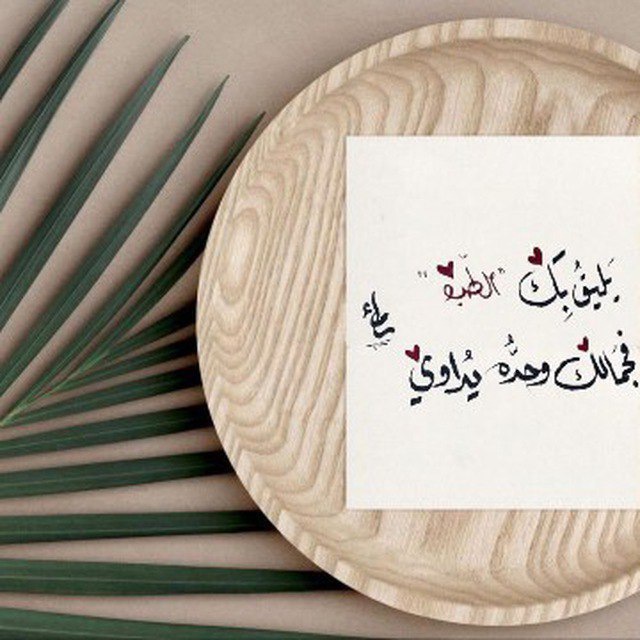 يَليقُ بِكَ "الطّب"
فجمالك وحدُّه يُداوي